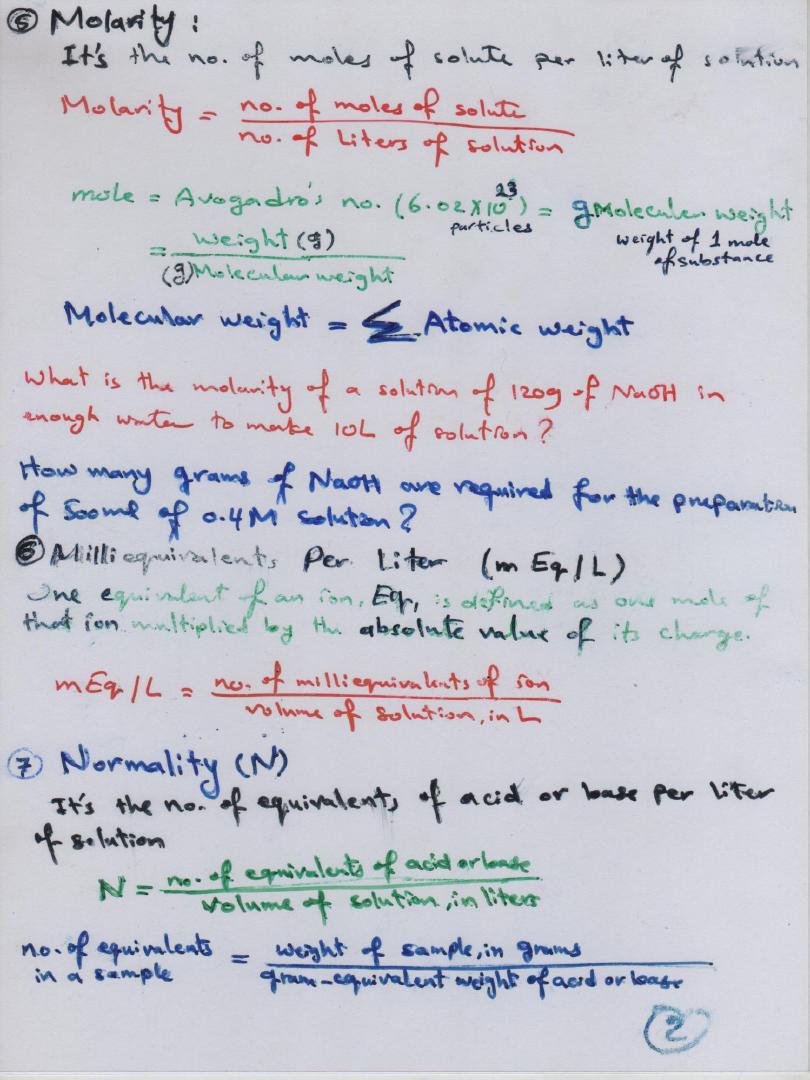 ⑤ Molarity :
It's the no. of moles of solute per liter of solution
Molarity = no. of moles of solute
no. of Liters of solution
mole = Avogadro's no. (6.02 X 10²³) = gMolecular weight
particles
weight of 1 mole
of substance
= weight (g)
(g)Molecular weight
Molecular weight = Σ Atomic weight
What is the molarity of a solution of 120g of NaOH in
enough water to make 10L of solution ?
How many grams of NaOH are required for the preparation
of 500ml of 0.4M solution ?
⑥ Milliequivalents Per Liter (m Eq / L)
One equivalent of an ion, Eq, is defined as one mole of
that ion multiplied by the absolute value of its charge.
mEq / L = no. of milliequivalents of ion
volume of solution, in L
⑦ Normality (N)
It's the no. of equivalents of acid or base per liter
of solution
N = no. of equivalents of acid or base
volume of solution, in liters
no. of equivalents
in a sample = weight of sample, in grams
gram-equivalent weight of acid or base
②